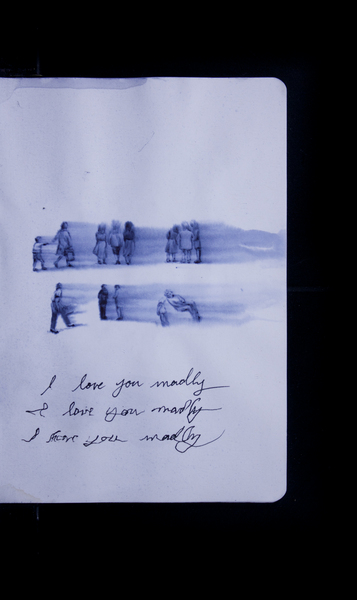 I love you madly
I love you madly
I love you madly